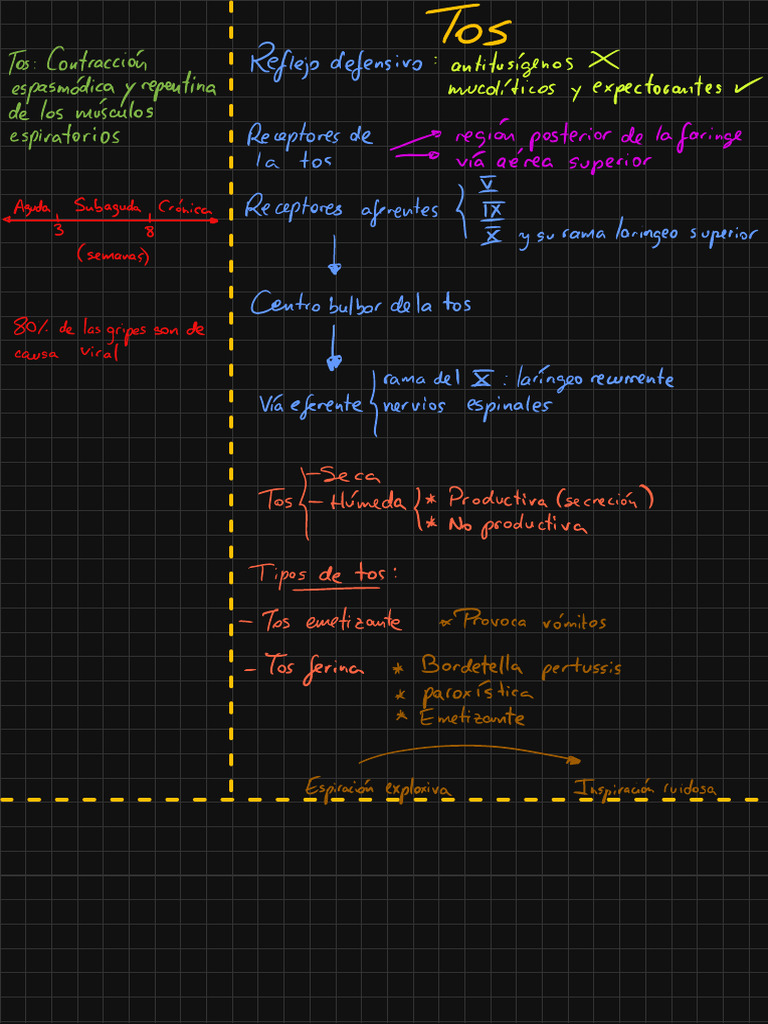 Tos
Tos: Contracción
espasmódica y repentina
de los músculos
espiratorios
Aguda Subaguda Crónica
3 8
(semanas)
80% de las gripes son de
causa viral
Reflejo defensivo: antitusígenos X
mucolíticos y expectorantes ✓
Receptores de
la tos
región posterior de la faringe
vía aérea superior
Receptores aferentes
V
IX
X y su rama laringeo superior
Centro bulbar de la tos
Vía eferente
rama del X: laríngeo recurrente
nervios espinales
Tos
- Seca
- Húmeda
* Productiva (secreción)
* No productiva
Tipos de tos:
- Tos emetizante * Provoca vómitos
- Tos ferina * Bordetella pertussis
* paroxística
* Emetizante
Espiración explosiva Inspiración ruidosa